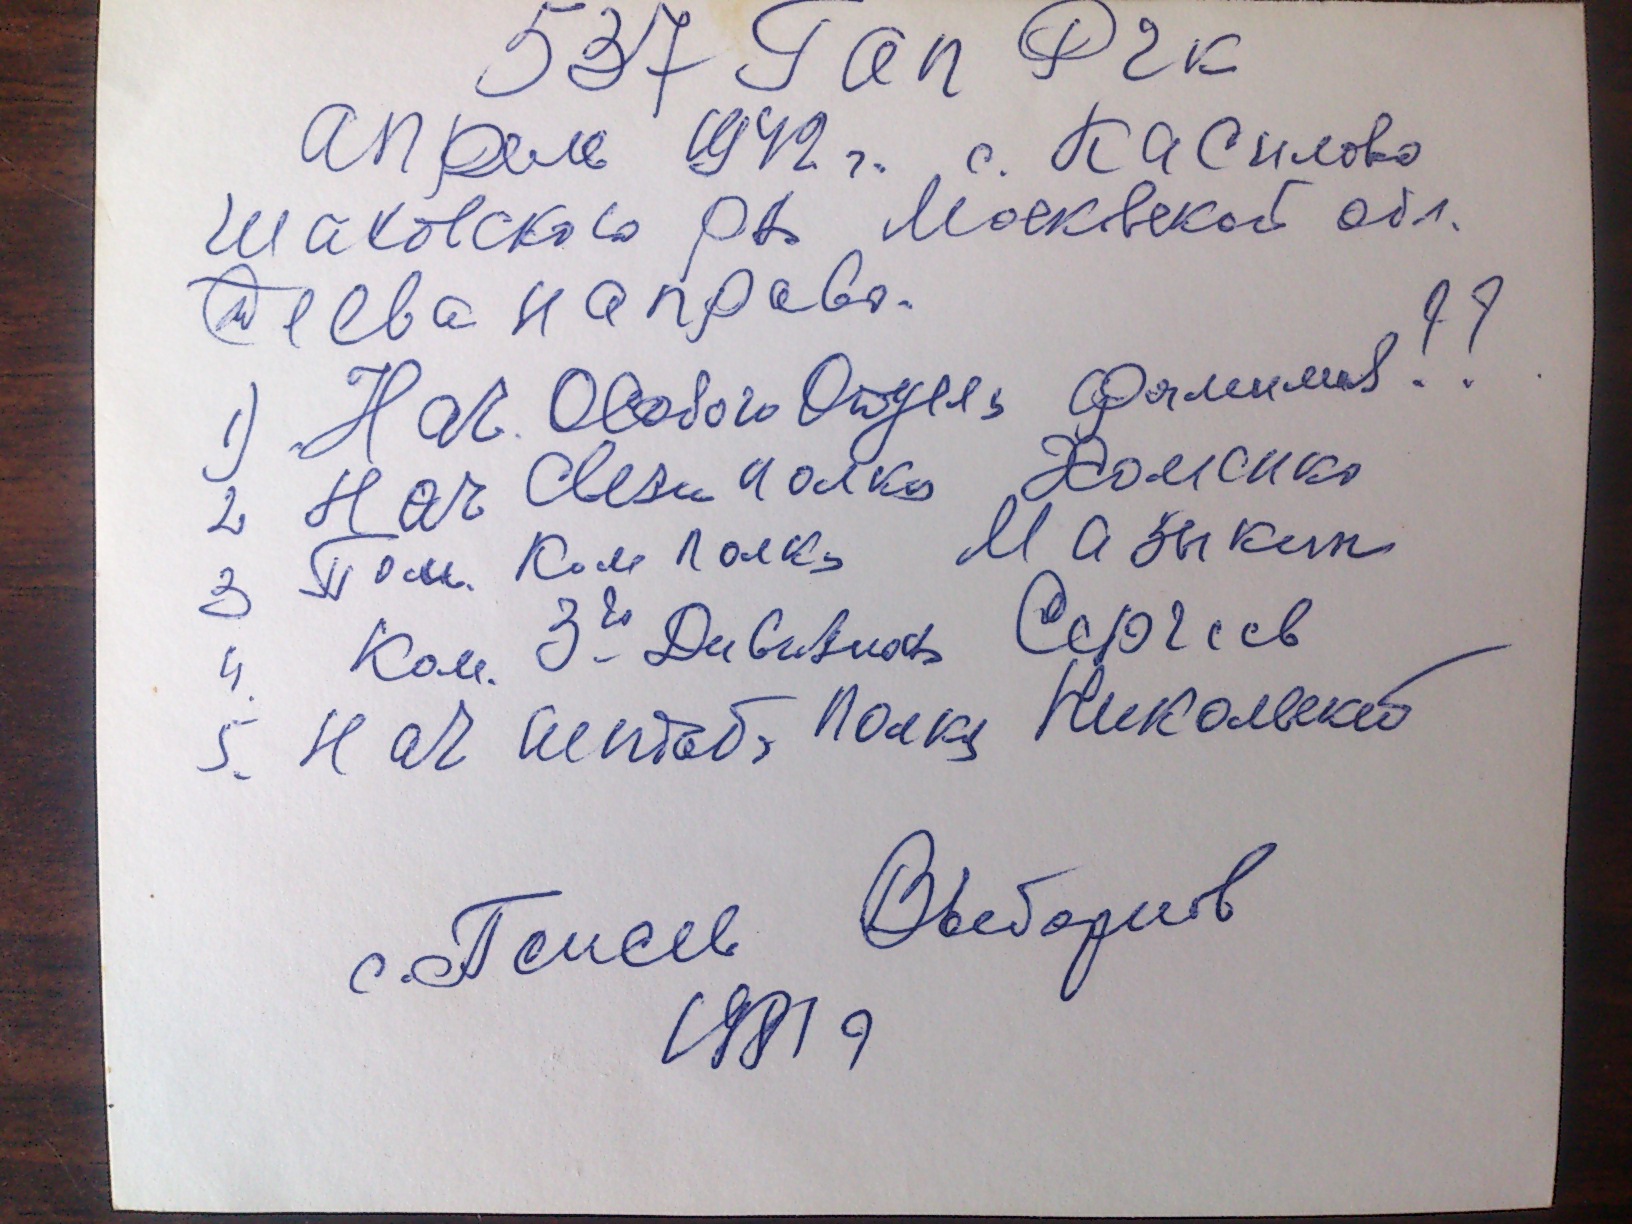 537 Гап РГК
Апрель 1942 г. с. Касилово
Шаховского р-на Московской обл.
Слева направо.
1) Нач. Особого Отдела фамилия??
2 Нач связи полка Хоменко
3 Пом. Ком полка Мазыкин
4. Ком. 3го Дивизиона Сергеев
5. Нач штаба полка Никольский
Выборнов
1981 г